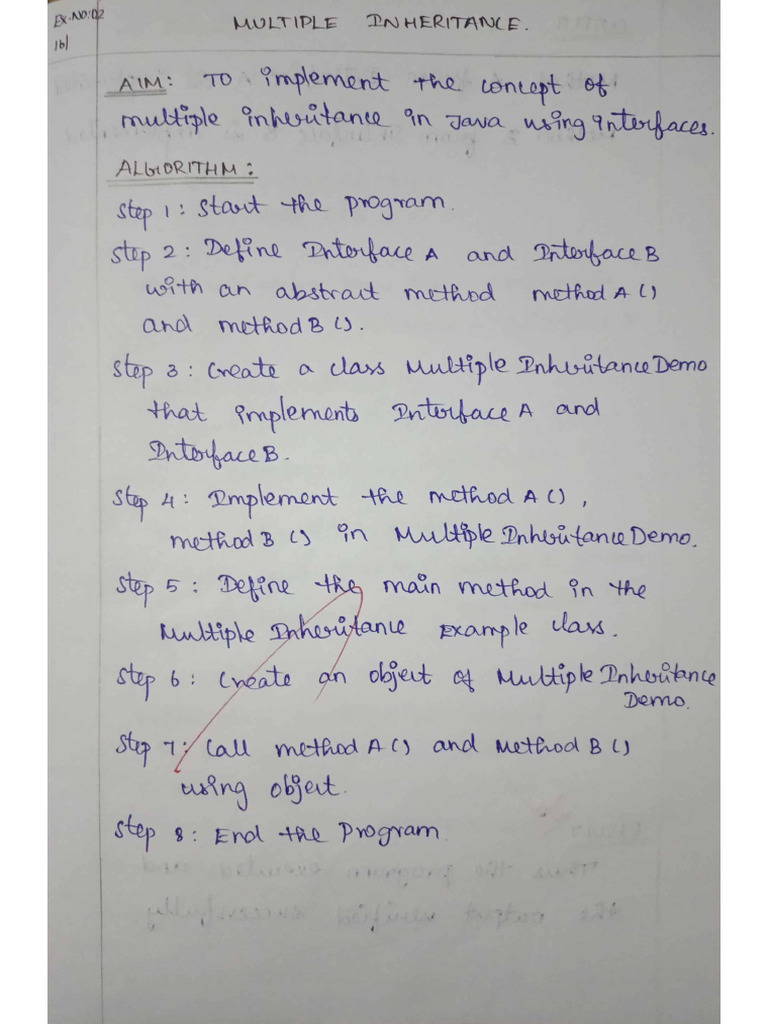 EX.NO:02
1b)
MULTIPLE INHERITANCE.
AIM: To implement the concept of
multiple inheritance in Java using interfaces.
ALGIORITHM:
Step 1: Start the program.
Step 2: Define Interface A and Interface B
with an abstract method method A ()
and method B ().
Step 3: Create a class Multiple Inheritance Demo
that implements Interface A and
Interface B.
Step 4: Implement the method A (),
method B () in Multiple Inheritance Demo.
Step 5: Define the main method in the
Multiple Inheritance Example class.
Step 6: Create an object of Multiple Inheritance
Demo.
Step 7: Call method A () and Method B ()
using object.
Step 8: End the Program.